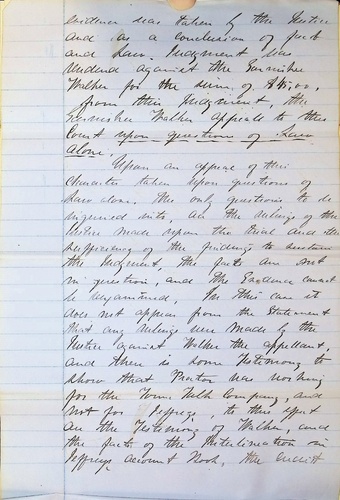 evidence was taken by the Justice
and as a conclusion of fact
and Law, Judgment was
rendered against the Garnishee
Walker for the sum of
from this Judgment, the
Garnishee Walker appeals to this
Court upon questions of Law
alone.
Upon an appeal of this
character taken upon questions of
Law alone, the only questions to be
inquired into, are the rulings of the
Justice made upon the trial and the
sufficiency of the findings to sustain
the Judgment, the facts are not
in question, and the Evidence cannot
be reexamined, In this case it
does not appear from the Statement
that any rulings were made by the
Justice against Walker the appellant,
and there is some Testimony to
show that Proctor was working
for the Town Talk Company, and
not for Jeffreys, to this effect
are the Testimony of Walker, and
the facts of the Interlineation in
Jeffreys account Book, the